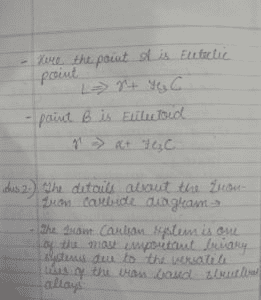 - Here the point A is Eutectic
point
L ⇒ γ + Fe₃C
- point B is Eutectoid
γ ⇒ α + Fe₃C
Ans 2.) The details about the Iron-
Iron carbide diagram →
- The Iron Carbon system is one
of the most important binary
systems due to the versatile
uses of the iron based structural
alloys